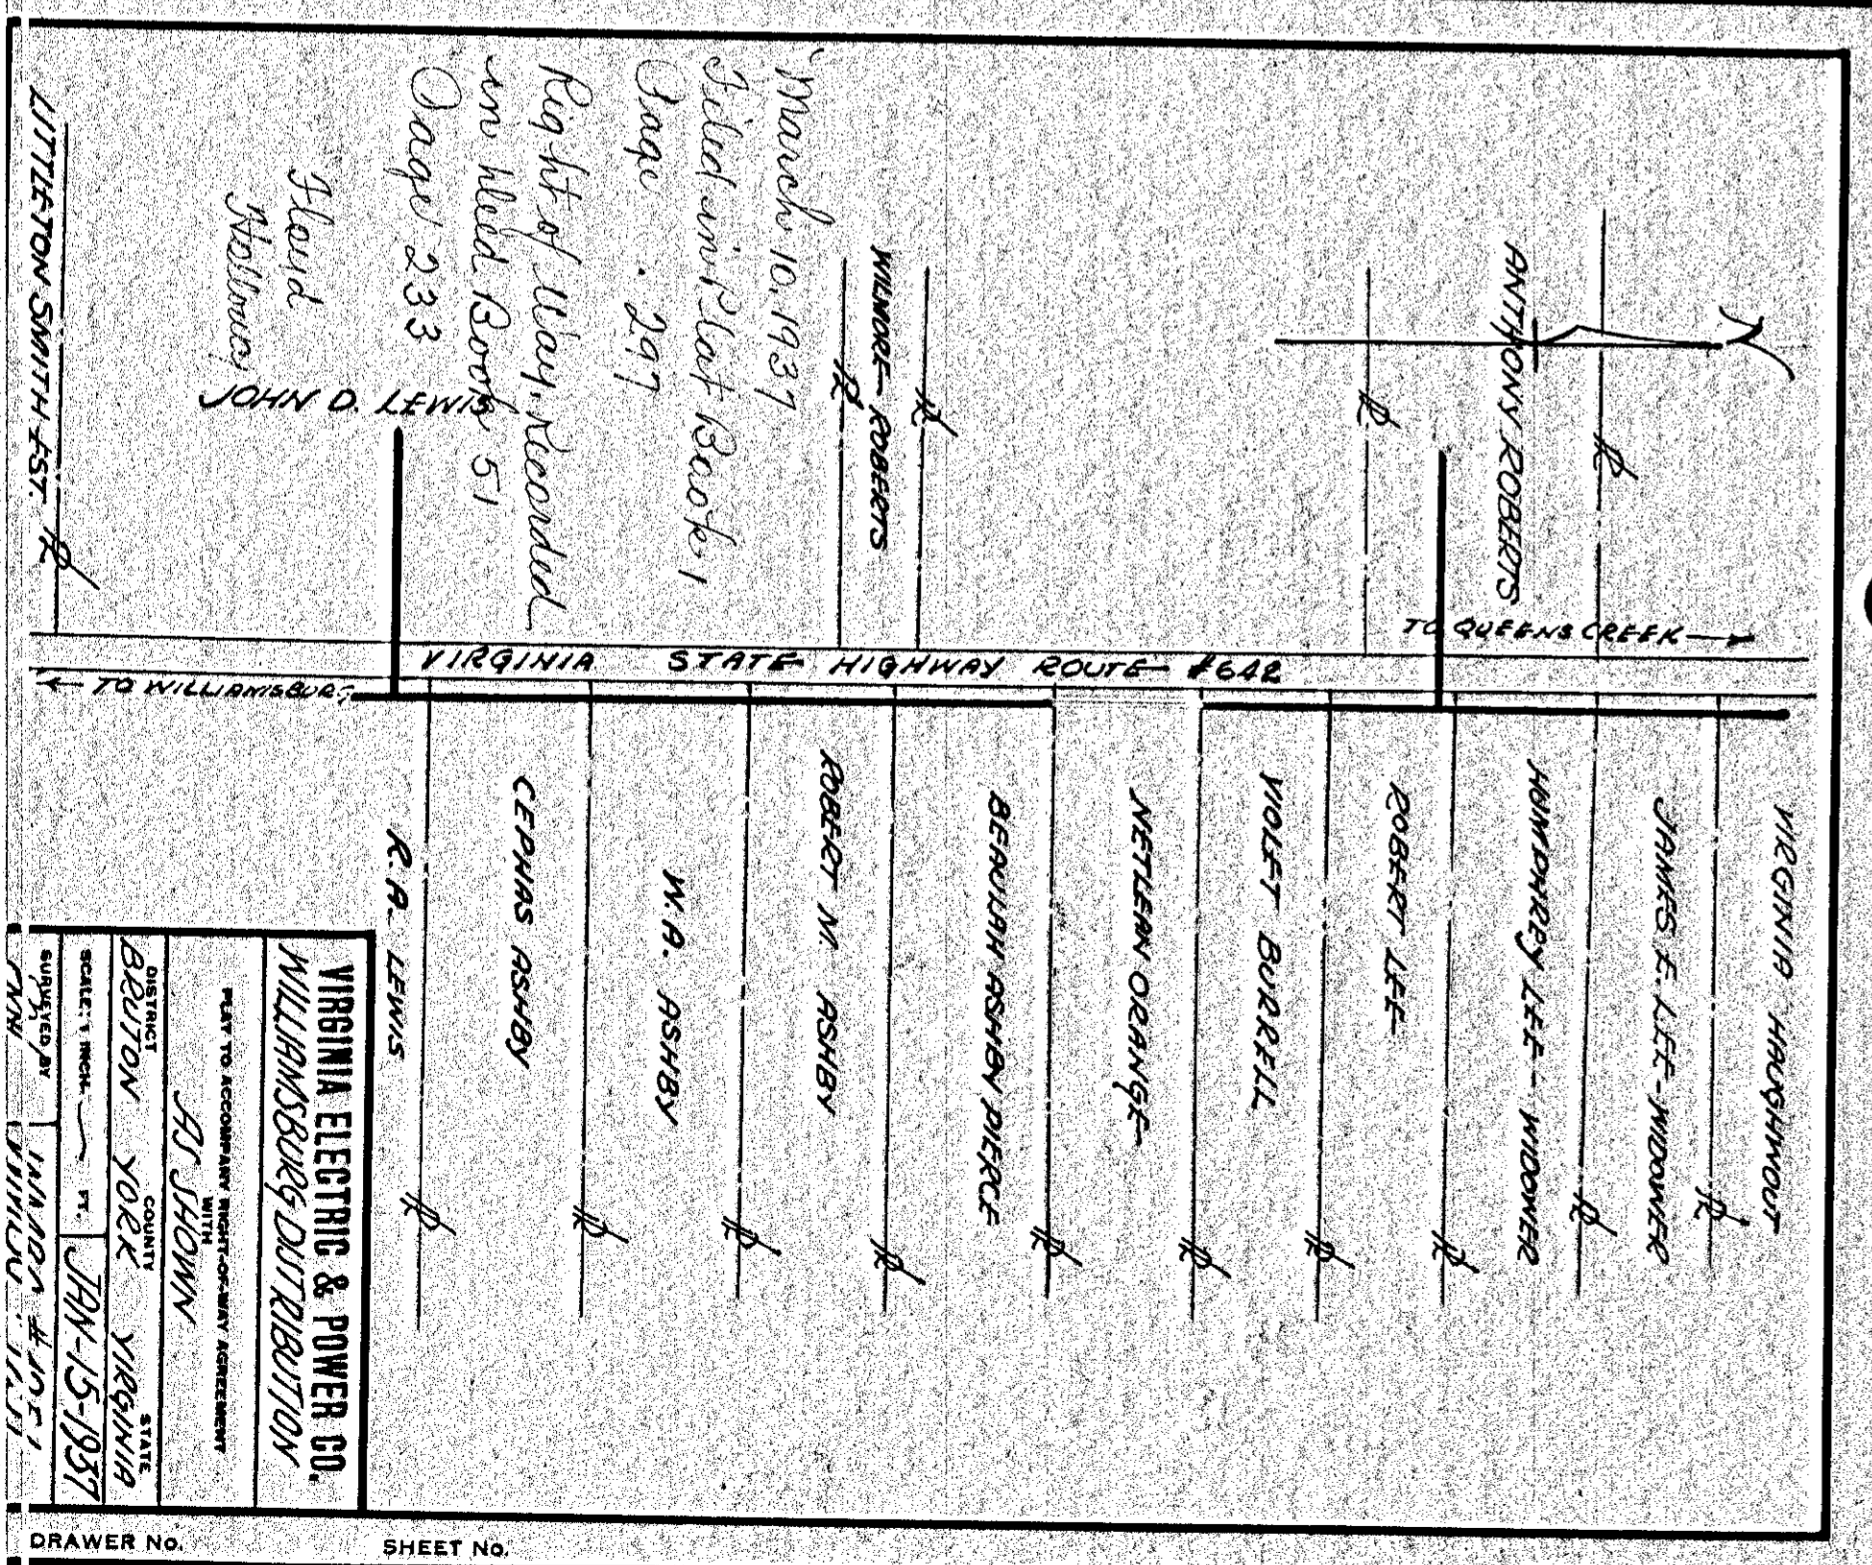 March 10, 1937
Filed in Plat Book 1
Page 297
Right of Way, Recorded
in Deed Book 51
Page 233
Floyd
LITTLETON SMITH EST.
JOHN D. LEWIS
WILMORE ROBERTS
ANTHONY ROBERTS
TO QUEENS CREEK
VIRGINIA STATE HIGHWAY ROUTE #642
TO WILLIAMSBURG
R. A. LEWIS
CEPHAS ASHBY
W. A. ASHBY
ROBERT N. ASHBY
BEAULAH ASHBY PIERCE
NETLEAN ORANGE
VIOLET BURRELL
ROBERT LEE
HUMPHREY LEE - WIDOWER
JAMES E. LEE - WIDOWER
VIRGINIA HAUGHWOUT
VIRGINIA ELECTRIC & POWER CO.
WILLIAMSBURG DISTRIBUTION
PLAT TO ACCOMPANY RIGHT-OF-WAY AGREEMENT
WITH
AS SHOWN
DISTRICT COUNTY STATE
BRUTON YORK VIRGINIA
SCALE: 1 INCH FT. JAN-15-1937
SURVEYED BY
DRAWER No.
SHEET No.